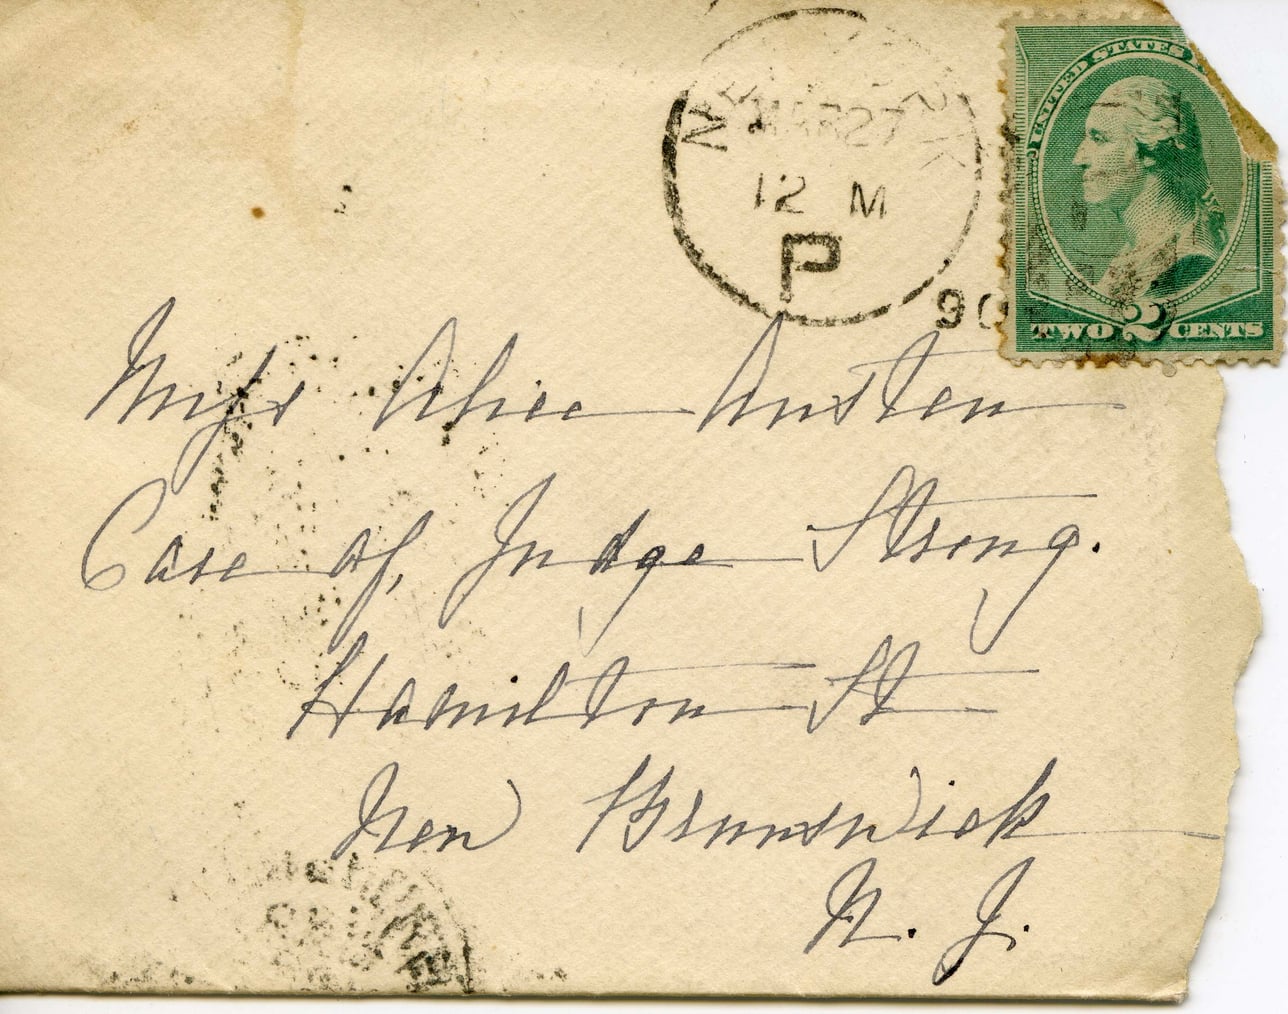 NEW YORK
MAR 27
12 M
P
90
UNITED STATES
TWO 2 CENTS
Miss Alice Austen
Care of Judge Strong.
Hamilton St
New Brunswick
N. J.